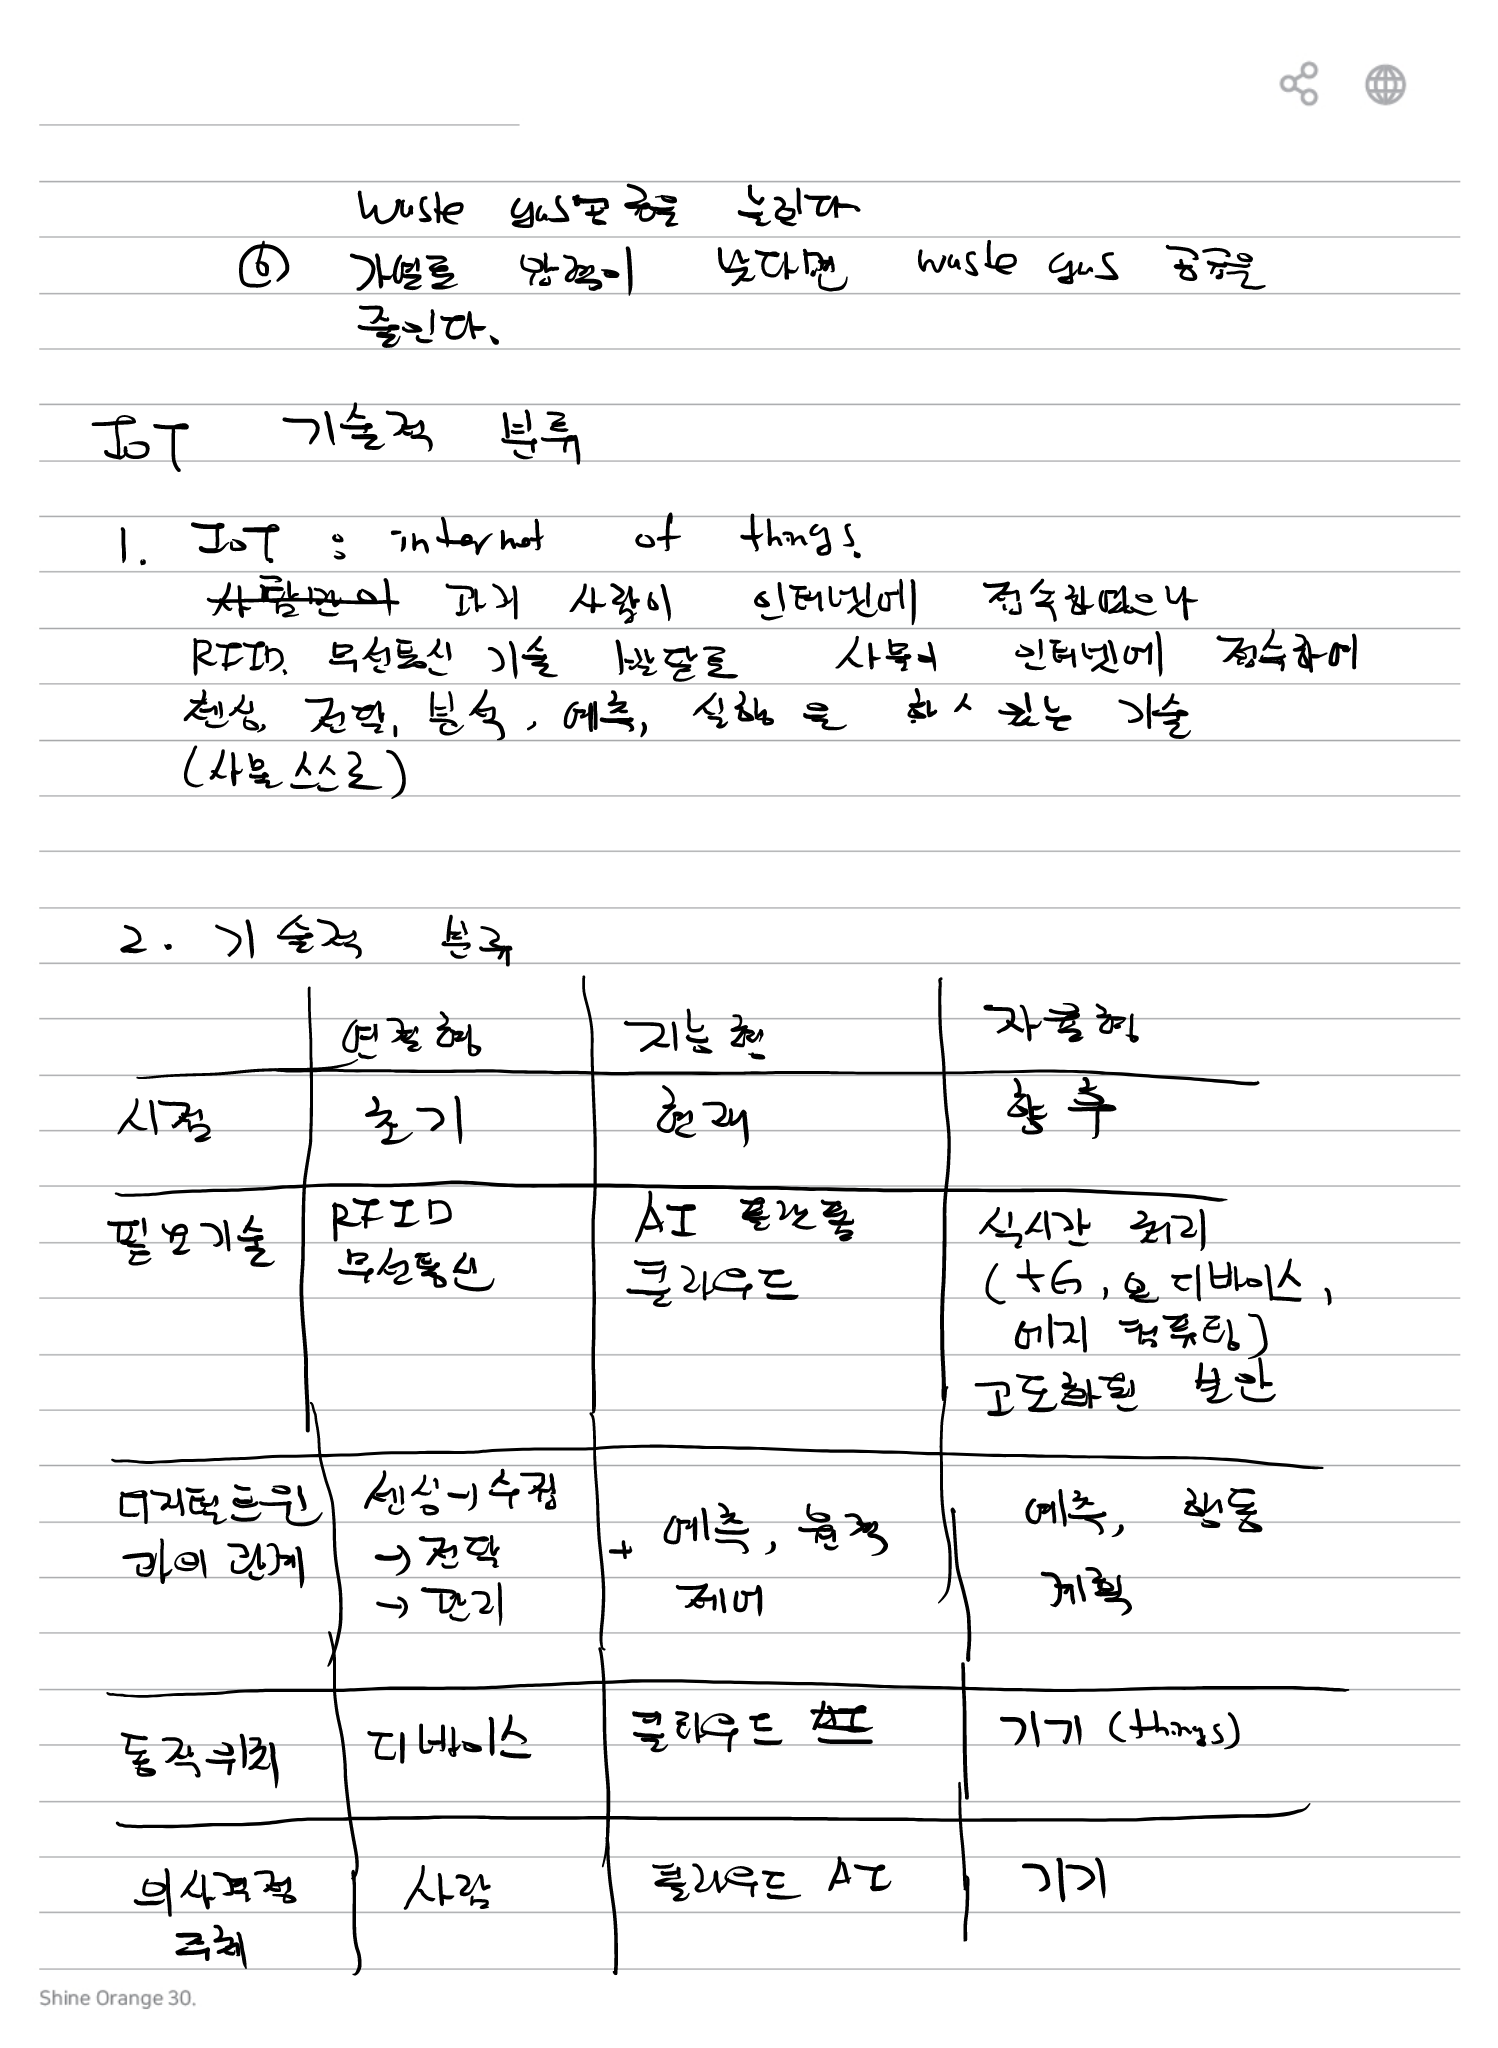 waste gas 공급을 늘린다
⑥ 가열로 압력이 낮다면 waste gas 공급을
줄인다.
IoT 기술적 분류
1. IoT : internet of things.
과거 사람이 인터넷에 접속하였으나
RFID, 무선통신 기술 발달로 사물이 인터넷에 접속하여
센싱, 전달, 분석, 예측, 실행을 할 수 있는 기술
(사물 스스로)
2. 기술적 분류
연결형 지능형 자율형
시점 초기 현재 향후
필요기술 RFID AI 플랫폼 실시간 처리
무선통신 클라우드 (5G, 온디바이스,
에지 컴퓨팅)
고도화된 보안
디지털트윈 센싱→수집 + 예측, 원격 예측, 행동
과의 관계 → 전달 제어 계획
→ 관리
동작위치 디바이스 클라우드 AI 기기 (things)
의사결정 사람 클라우드 AI 기기
주체
Shine Orange 30.